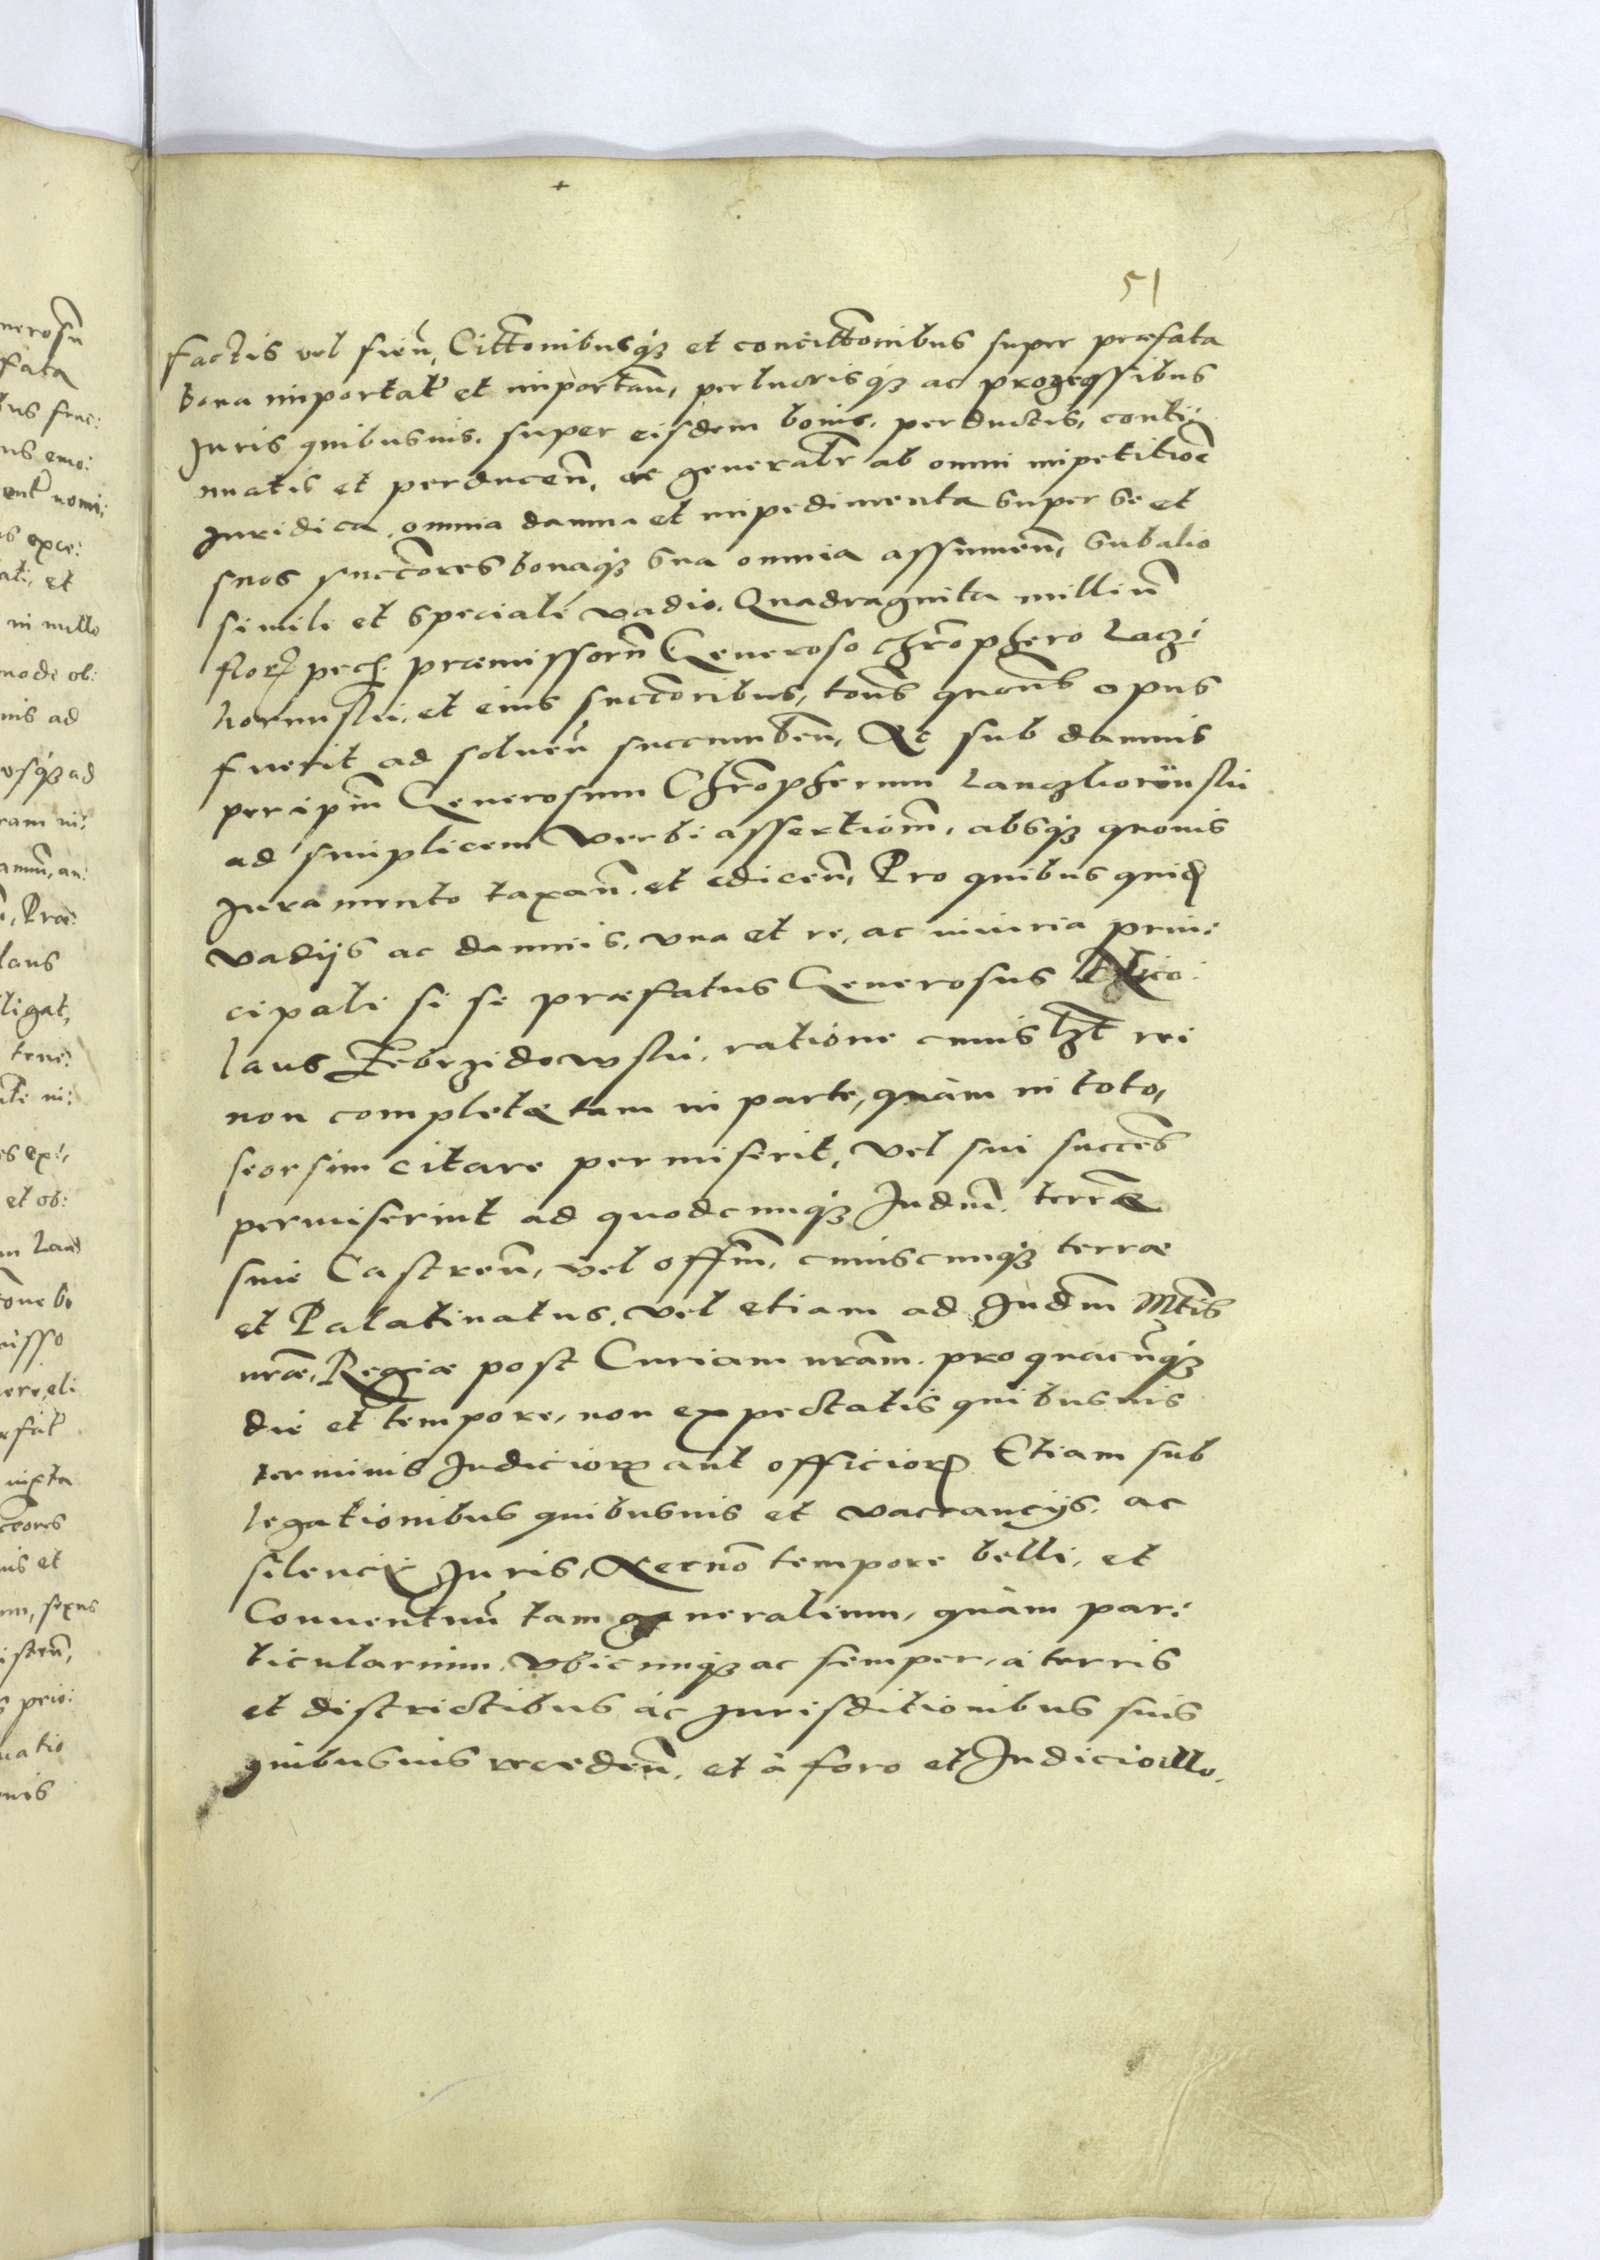 51
factis vel fień, Cittonibusq3 et concittonibus super præfata
bona importat et importań, per lucrisq3 ac processibus
Juris quibusuis, super eisdem bonis, perductis, conti:
nuatis et perduceń, ac generalr ab omni impetitioe
Juridica, omnia damna et impedimenta super se et
suos succores bonaq3 sua omnia assumeń, sub alio
simili et speciali vadio, Quadraginta milliu
flor pech præmissoru Generoso Chrophero Lacz:
korunski, et eius succoribus, tons quons opus
fuerit ad solueń succumbeń, Ac sub damnis
per ipm Generosum Chropherum Lanczkorunski
ad simplicem verbi assertiom, absq3 quouis
Juramento taxań, et ediceń, Pro quibus quid
vadijs ac damnis, vna et re, ac iniuria prin:
cipali si se præfatus Generosus Nico:
laus Zebrzidowski, ratione cuius lzt rei
non completæ tam in parte, quàm in toto,
seorsim citare permiserit, vel sui succes
permiserint ad quodcunq3 Judm terræ
sui Castreń, vel offm, cuiuscunq3 terræ
et Palatinatus, vel etiam ad Judm Mtis
nræ, Regiæ post Curiam nram, pro quacunq3
die et tempore, non expectatis quibusuis
terminis Judicior aut officior Etiam sub
legationibus quibusuis et vaccancijs, ac
silencijs Juris, Necno tempore belli, et
Conuentuu tam generalium, quàm par:
ticularium, vbicunq3 ac semper, à terris
et districtibus ac Jurisditionibus suis
quibusuis recedeń, et à foro et Judicio illo,